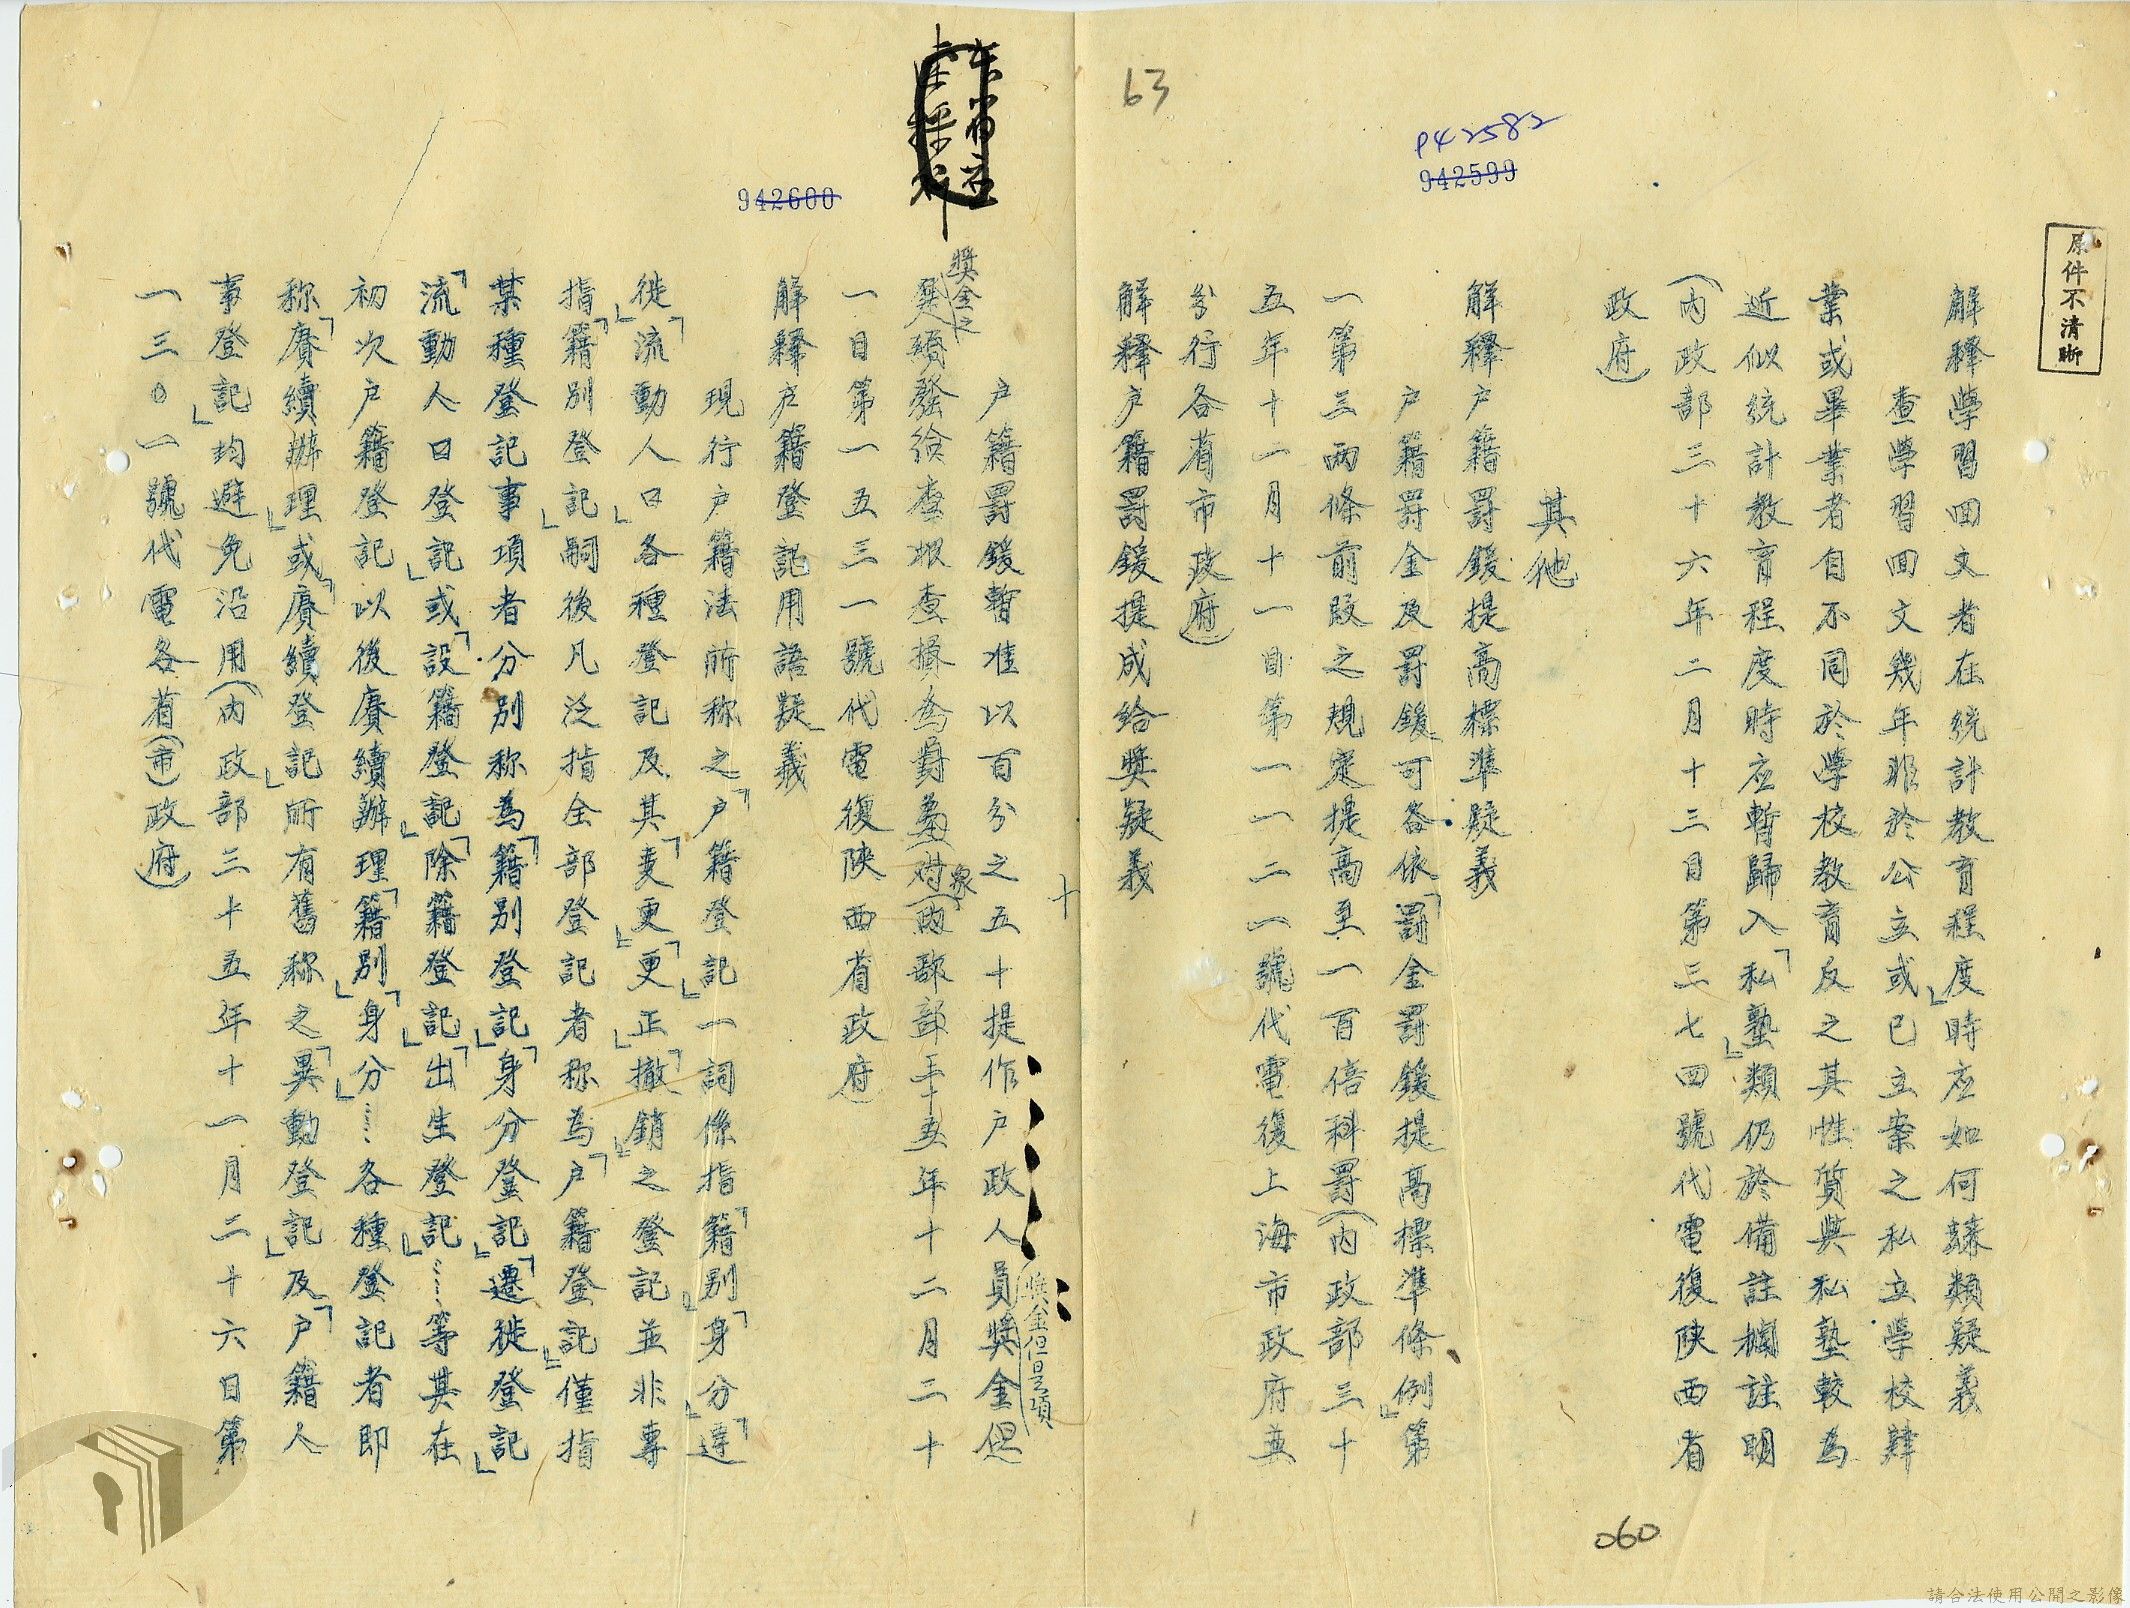 原件不清晰
63
P42582
942599
解釋學習回文者在統計教育程度」時应如何隸類疑義
查學習回文幾年非於公立或已立案之私立學校肄
業或畢業者自不同於學校教育反之其性質與私塾較為
近似統計教育程度時应暫歸入「私塾」類仍於備註欄註明
(內政部三十六年二月十三日第三七四號代電復陝西省
政府)
其他
解釋户籍罰鍰提高標準疑義
户籍罰金及罰鍰可各依「罰金罰鍰提高標準條例」第
一第三兩條前段之規定提高至一百倍科罰(內政部三十
五年十二月十一日第一一二一號代電復上海市政府並
分行各省市政府)
解釋户籍罰鍰提成給獎疑義
060
十
942600
户籍罰鍰暫准以百分之五十提作户政人員獎金但
獎金但是項
獎金之
發給查
一日第一五三一號代電復陝西省政府)
解釋户籍登記用語疑義
現行户籍法所称之「户籍登記」一詞係指「籍别」「身分」「遷
徙」「流動人口」各種登記及其「变更」「更正」「撤銷」之登記並非專
指「籍别登記」嗣後凡泛指全部登記者称為「户籍登記」僅指
某種登記事項者分别称為「籍别登記」「身分登記」「遷徙登記」
「流動人口登記」或「設籍登記」「除籍登記」「出生登記」……等其在
初次户籍登記以後賡續辦理「籍别」「身分」……各種登記者即
称「賡續辦理」或「賡續登記」所有舊称之「異動登記」及「户籍人
事登記」均避免沿用(內政部三十五年十一月二十六日第
一三〇一號代電各省(市)政府)
請合法使用公開之影像